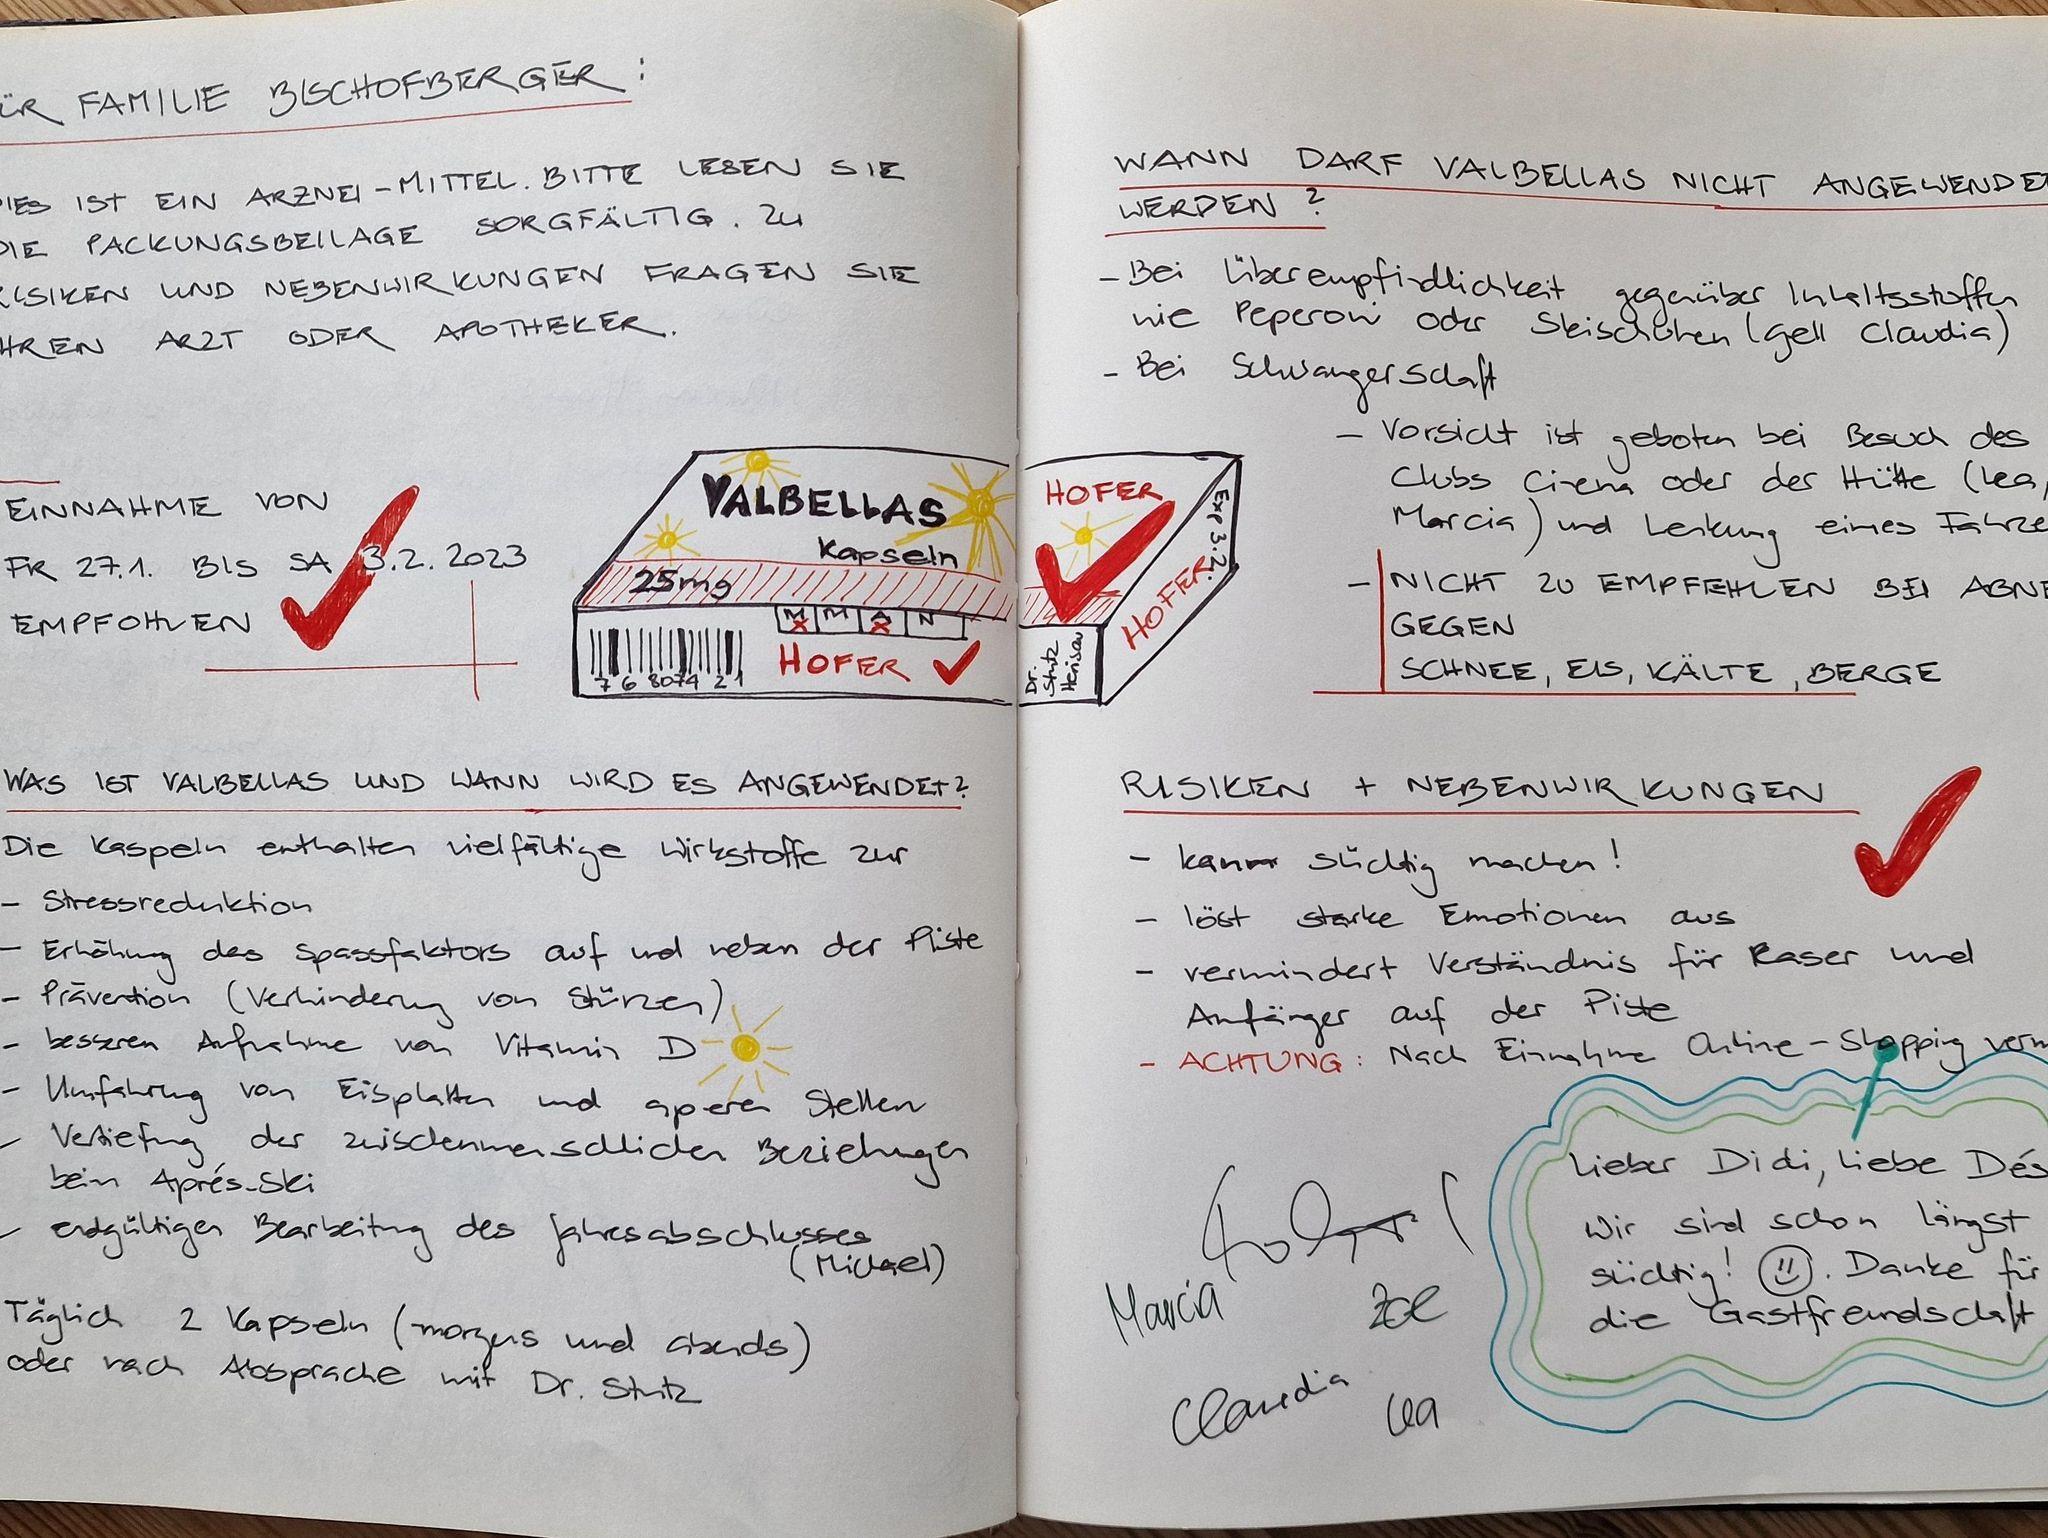 ÜR FAMILIE BISCHOFBERGER:
IES IST EIN ARZNEI-MITTEL. BITTE LESEN SIE
DIE PACKUNGSBEILAGE SORGFÄLTIG. ZU
RISIKEN UND NEBENWIRKUNGEN FRAGEN SIE
HREN ARZT ODER APOTHEKER.
EINNAHME VON
FR 27.1. BIS SA 3.2. 2023
EMPFOHLEN
VALBELLAS
Kapseln
25mg
M M A N
HOFER
7 6 8074 2 1
WAS IST VALBELLAS UND WANN WIRD ES ANGEWENDET?
Die Kaspeln enthalten vielfältige Wirkstoffe zur
- Stressreduktion
- Erhöhung des Spassfaktors auf und neben der Piste
- Prävention (Verhinderung von Stürzen)
- besseren Aufnahme von Vitamin D
- Umfahrung von Eisplatten und aperen Stellen
- Vertiefung der zwischenmenschlichen Beziehungen
beim Aprés-Ski
- endgültigen Bearbeitung des Jahresabschlusses
(Michael)
Täglich 2 Kapseln (morgens und abends)
oder nach Absprache mit Dr. Stutz
WANN DARF VALBELLAS NICHT ANGEWENDE
WERDEN?
- Bei Überempfindlichkeit gegenüber Inhaltsstoffen
wie Peperoni oder Skischuhen (gell Claudia)
- Bei Schwangerschaft
- Vorsicht ist geboten bei Besuch des
Clubs Cinema oder der Hütte (Lea,
Marcia) und Lenkung eines Fahrze
- NICHT ZU EMPFEHLEN BEI ABNE
GEGEN
SCHNEE, EIS, KÄLTE, BERGE
HOFER
Exp 3.2.
HOFER
Dr.
Stutz
Herisau
RISIKEN + NEBENWIRKUNGEN
- kann süchtig machen!
- löst starke Emotionen aus
- vermindert Verständnis für Raser und
Anfänger auf der Piste
- ACHTUNG: Nach Einnahme Online-Shopping verm
Lieber Didi, liebe Dés
Wir sind schon längst
süchtig! Danke für
die Gastfreundschaft
Marcia Zoe
Claudia Lea